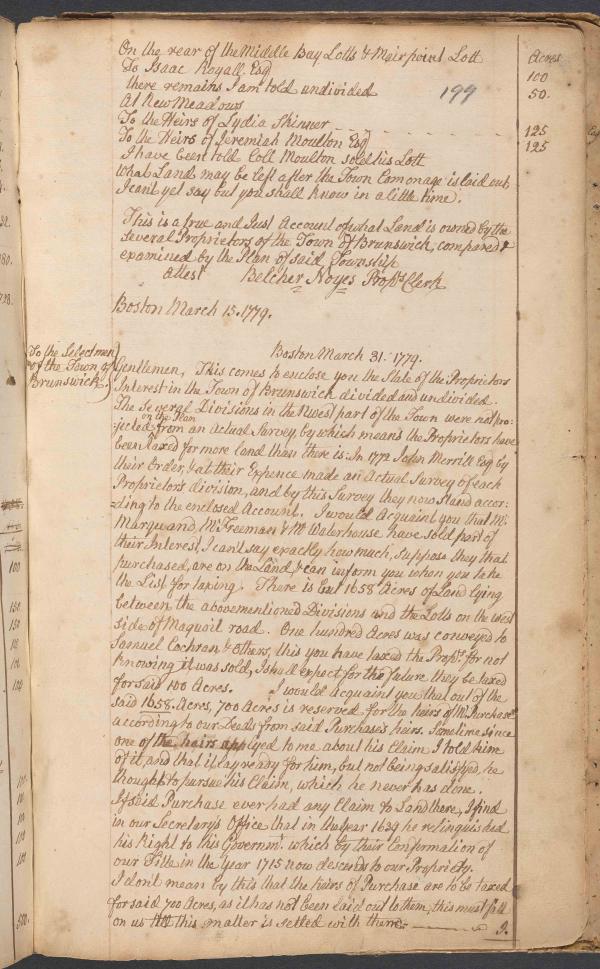 On the rear of the Middle Bay Lotts & Mair point Lott Acres
To Isaac Royall Esq 100
there remains I am told undivided 199 50.
At New Meadows
To the Heirs of Lydia Skinner 125
To the Heirs of Jeremiah Moulton Esq 125
I have been told Coll Moulton sold his Lott
what Land may be left after the Town Comonage is laid out,
I cant yet say but you shall know in a little time.
This is a true and Just Account of what Land is owned by the
several Proprietors of the Town of Brunswick, compared &
examined by the Plan of said Township
attest Belcher Noyes Prop.rs Clerk
Boston March 15. 1779.
Boston March 31. 1779.
To the Selectmen
of the Town of
Brunswick
Gentlemen, This comes to enclose you the State of the Proprietors
Interest in the Town of Brunswick divided and undivided.
The Several Divisions in the N west part of the Town were not pro-
on the Plan
jected from an actual Survey, by which means the Proprietors have
been Taxed for more land than there is: In 1772 John Merrill Esq by
their Order, & at their Expence made an Actual Survey of each
Proprietors division, and by this Survey they now stand accor:
=ding to the enclosed Account. I would Acquaint you that Mr
Marquand, Mr Freeman & Mr Waterhouse, have sold part of
their Interest, I can't say exactly how much, Suppose they that
purchased, are on the Land, & can inform you when you take
the List for taxing. There is but 1658 Acres of Land lying
between the abovementioned Divisions and the Lotts on the west
side of Maquoit road. One hundred Acres was conveyed to
Samuel Cochran & others, this you have taxed the Prop.rs for not
knowing it was sold, I shall expect for the future they be taxed
for said 100 Acres. I would Acquaint you that out of the
said 1658. Acres, 700 Acres is reserved for the heirs of Mr Purchase
according to our Deeds from said Purchase's heirs. Sometime since
one of the heirs applyed to me about his Claim I told him
of it, and that it lay ready for him, but not being satisfyed, he
thought to pursue his Claim, which he never has done.
If said Purchase ever had any Claim to Land there, I find
in our Secretary's Office that in the Year 1639 he relinquished
his Right to this Governmt. which by their Confirmation of
our Title in the Year 1715 now descends to our Propriety.
I don't mean by this that the heirs of Purchase are to be taxed
for said 700 Acres, as it has not been laid out to them, this must fall
on us till this matter is setled with them.